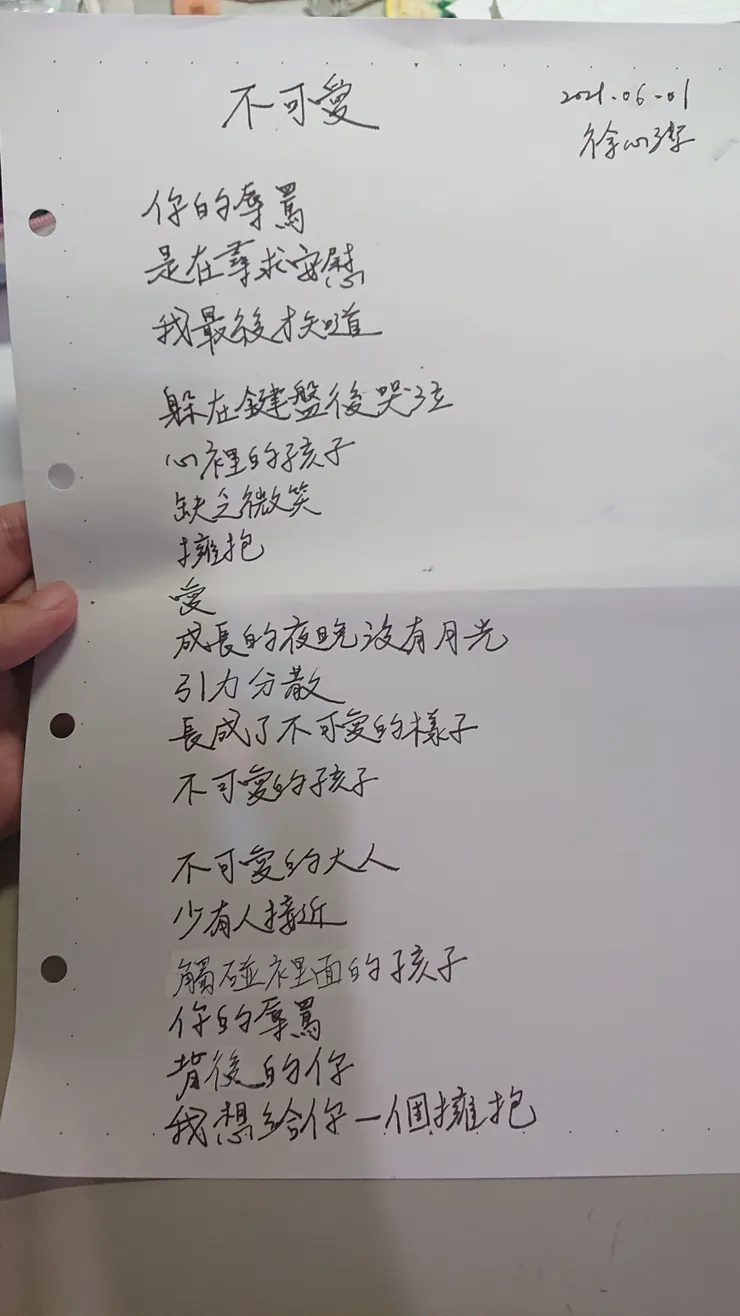 不可愛
2021.06.01
徐心潔
你的辱罵
是在尋求安慰
我最後才知道
躲在鍵盤後哭泣
心裡的孩子
缺乏微笑
擁抱
愛
成長的夜晚沒有月光
引力分散
長成了不可愛的樣子
不可愛的孩子
不可愛的大人
少有人接近
觸碰裡面的孩子
你的辱罵
背後的你
我想給你一個擁抱